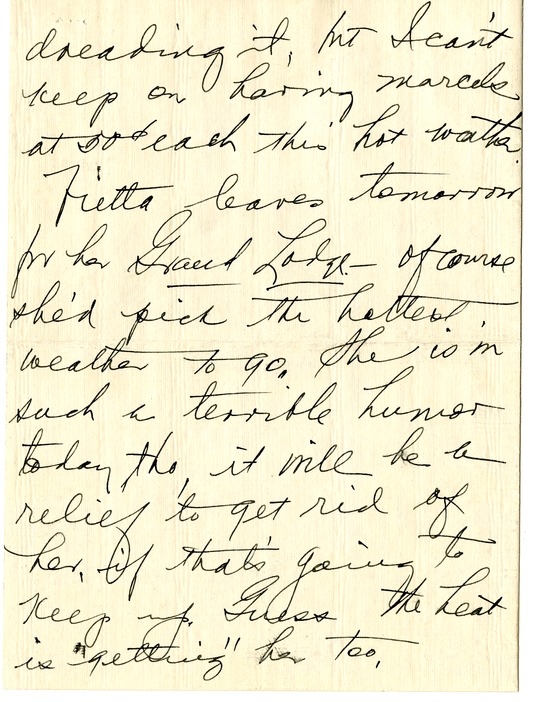 dreading it, but I can't
keep on having marcels
at 50¢ each this hot weather.
Fietta leaves tomorrow
for her Grand Lodge — of course
she'd pick the hottest
weather to go. She is in
such a terrible humor
today, tho, it will be a
relief to get rid of
her, if that's going to
keep up. Guess the heat
is "getting" her too.